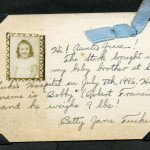 Hi! Auntie Grea!
The stork bought
my baby brother at St
Luke's Hospital on July 7th 1946. His
name is "Bobby" Robert Francis
and he weighs 9 lbs!
Betty Jane Tucker